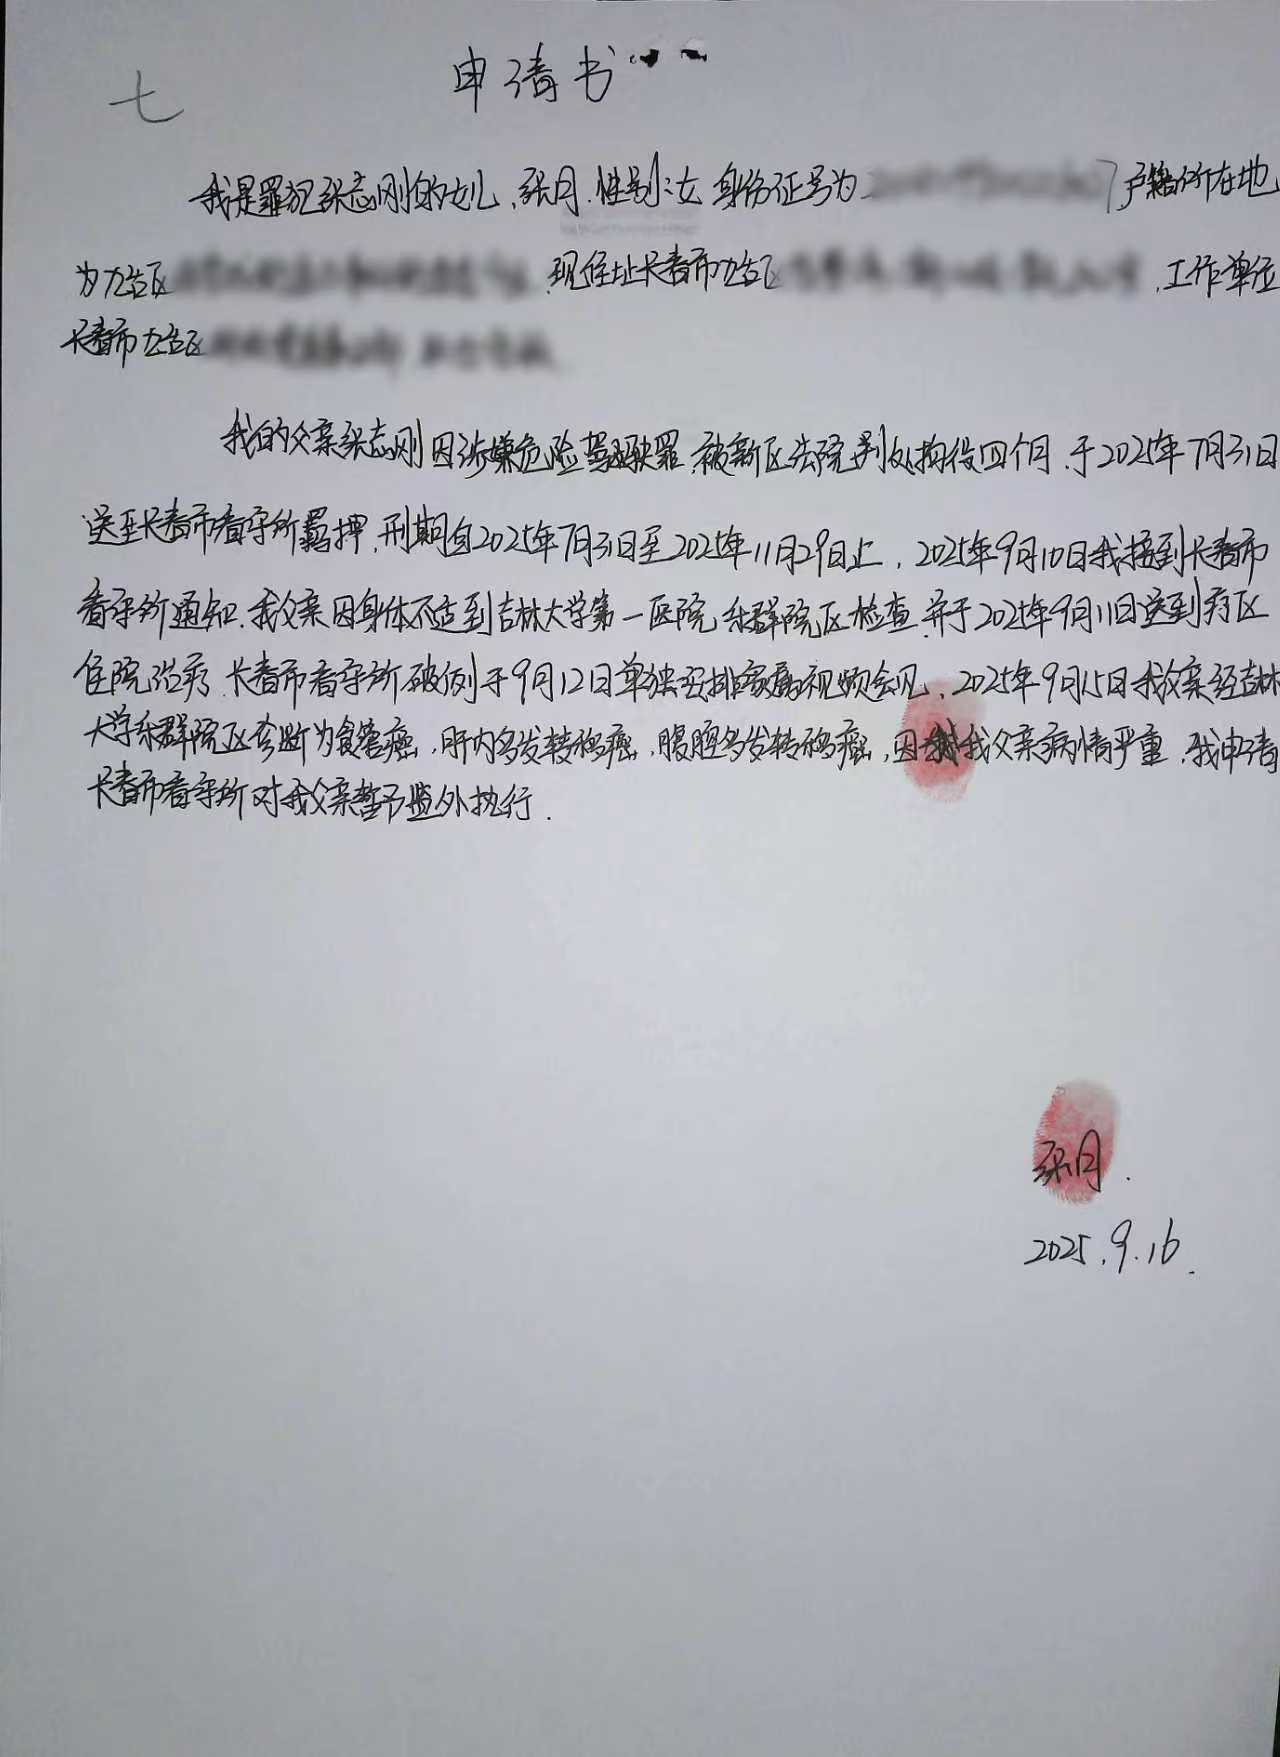 申请书
七
我是罪犯张志刚的女儿，张月，性别：女 身份证号为 7户籍所在地
为九台区 现住址长春市九台区 ，工作单位
长春市九台区
我的父亲张志刚因涉嫌危险驾驶罪，被新区法院判处拘役四个月，于2025年7月31日
送至长春市看守所羁押，刑期自2025年7月31日至2025年11月29日止，2025年9月10日我接到长春市
看守所通知，我父亲因身体不适到吉林大学第一医院乐群院区检查，并于2025年9月11日送到疗区
住院治疗，长春市看守所破例于9月12日单独安排家属视频会见，2025年9月15日我父亲经吉林
大学乐群院区诊断为食管癌，肝内多发转移癌，腹腔多发转移癌，因我父亲病情严重，我申请
长春市看守所对我父亲暂予监外执行.
张月.
2025.9.16.